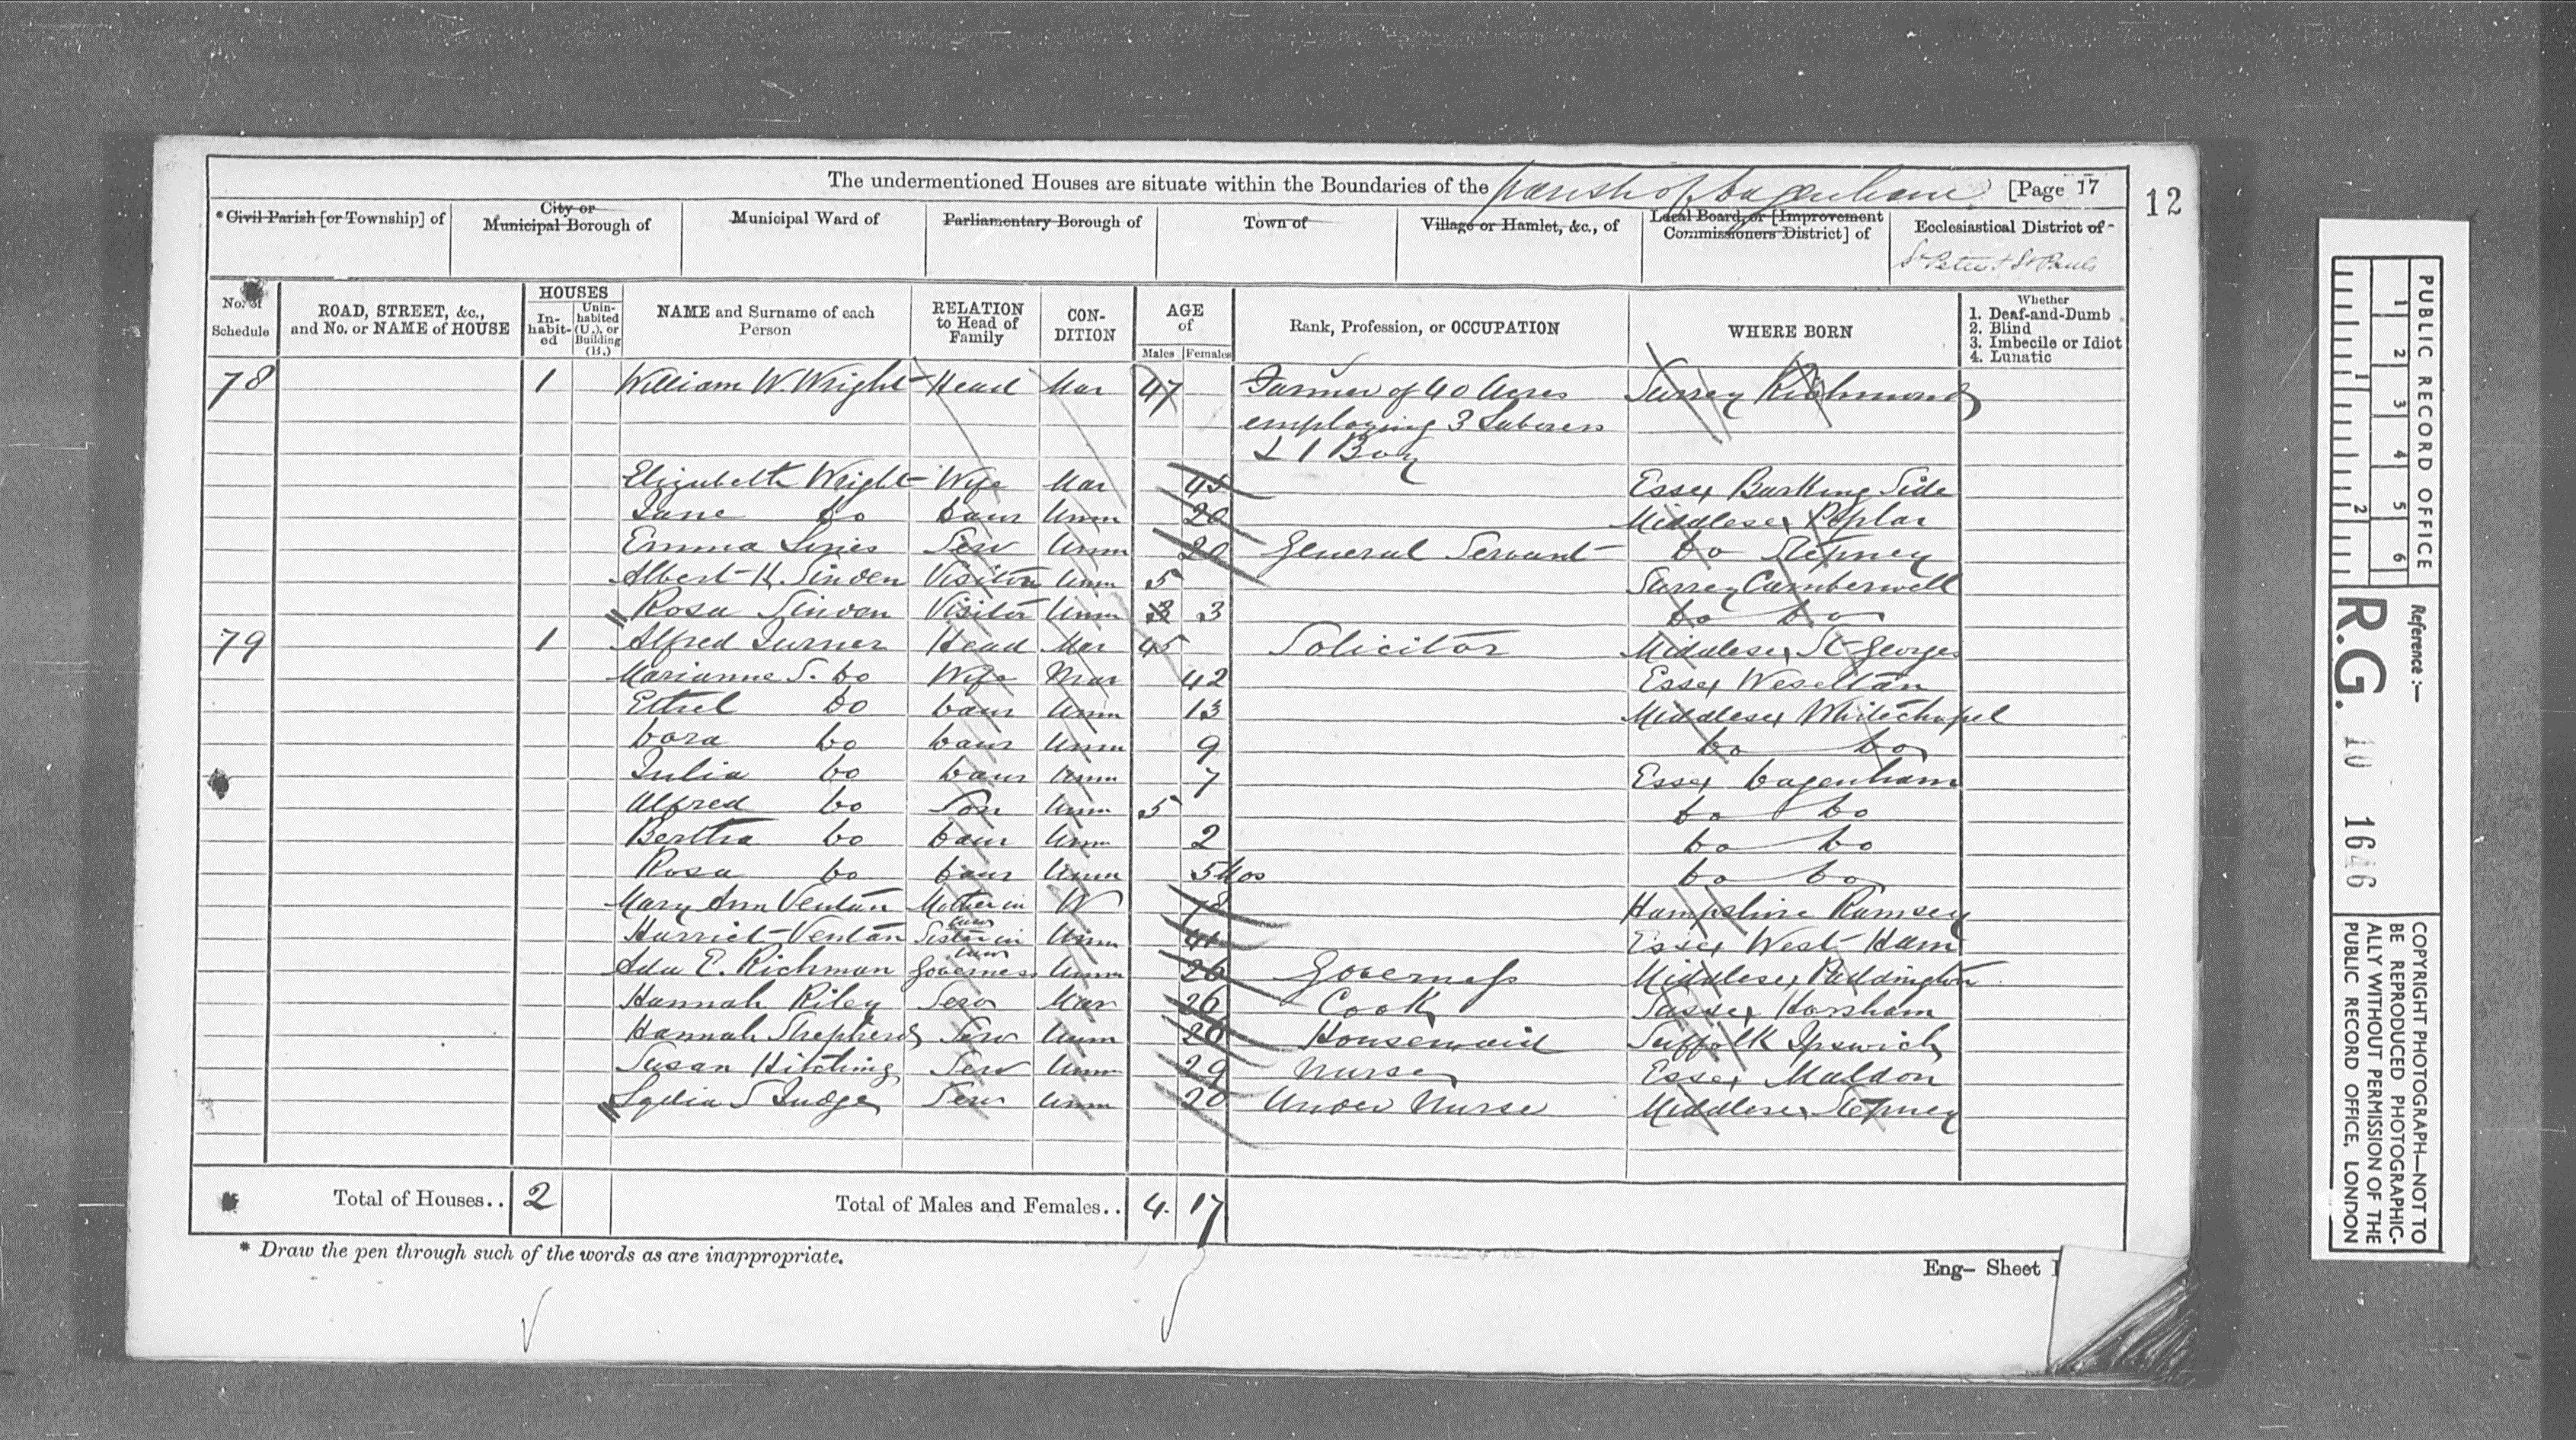 The undermentioned Houses are situate within the Boundaries of the parish of Dagenham [Page 17
12
*Civil Parish [or Township] of
City or Municipal Borough of
Municipal Ward of
Parliamentary Borough of
Town of
Village or Hamlet, &c., of
Local Board, or [Improvement Commissioners District] of
Ecclesiastical District of
St Peter & St Pauls
No. of Schedule
ROAD, STREET, &c., and No. or NAME of HOUSE
HOUSES
Inhabited
Uninhabited (U.), or Building (B.)
NAME and Surname of each Person
RELATION to Head of Family
CONDITION
AGE of
Males
Females
Rank, Profession, or OCCUPATION
WHERE BORN
Whether
1. Deaf-and-Dumb
2. Blind
3. Imbecile or Idiot
4. Lunatic
78 1 William W. Wright Head Mar 47 Farmer of 40 Acres Surrey Richmond
employing 3 Laborers
& 1 Boy
Elizabeth Wright Wife Mar 45 Essex Barking Side
Jane Do Daur Unm 20 Middlesex Poplar
Emma Serv Unm 20 General Servant Do Stepney
Albert K. Sinden Visitor Unm 5 Surrey Camberwell
Rosa Sinden Visitor Unm 3 3 Do Do
79 1 Alfred Turner Head Mar 45 Solicitor Middlesex St Georges
Marianne S. Do Wife Mar 42 Essex
Ethel Do Daur Unm 13 Middlesex Whitechapel
Dora Do Daur Unm 9 Do Do
Julia Do Daur Unm 7 Essex Dagenham
Alfred Do Son Unm 5 Do Do
Bertha Do Daur Unm 2 Do Do
Rosa Do Daur Unm 5 Mos Do Do
Mary Ann Venton Mother in law W 78 Hampshire Ramsey
Harriet Venton Sister in law Unm 41 Essex West Ham
Ada E. Richman Governess Unm 26 Governess Middlesex Paddington
Hannah Riley Serv Mar 26 Cook Sussex Horsham
Hannah Shepherd Serv Unm 26 Housemaid Suffolk Ipswich
Susan Hitching Serv Unm 29 Nurse Essex Maldon
Lydia S Judge Serv Unm 20 Under Nurse Middlesex Stepney
Total of Houses.. 2
Total of Males and Females.. 4 17
* Draw the pen through such of the words as are inappropriate.
Eng- Sheet
PUBLIC RECORD OFFICE
1 2 3 4 5 6
1 2
Reference :-
R.G. 10 1646
COPYRIGHT PHOTOGRAPH—NOT TO
BE REPRODUCED PHOTOGRAPHIC-
ALLY WITHOUT PERMISSION OF THE
PUBLIC RECORD OFFICE, LONDON